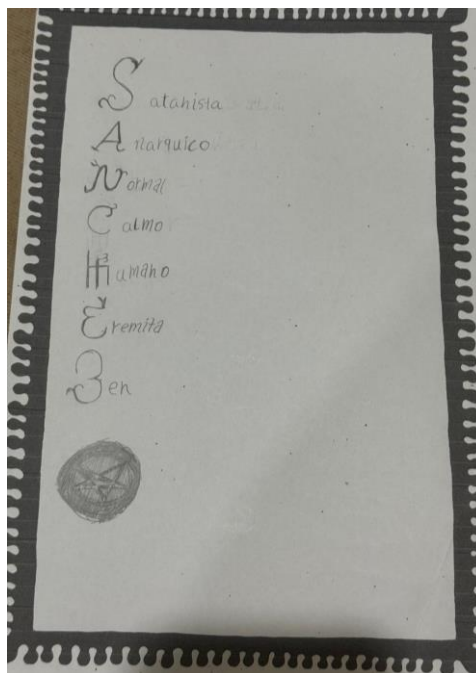 Satanista
Anarquico
Normal
Calmo
Humano
Eremita
Zen